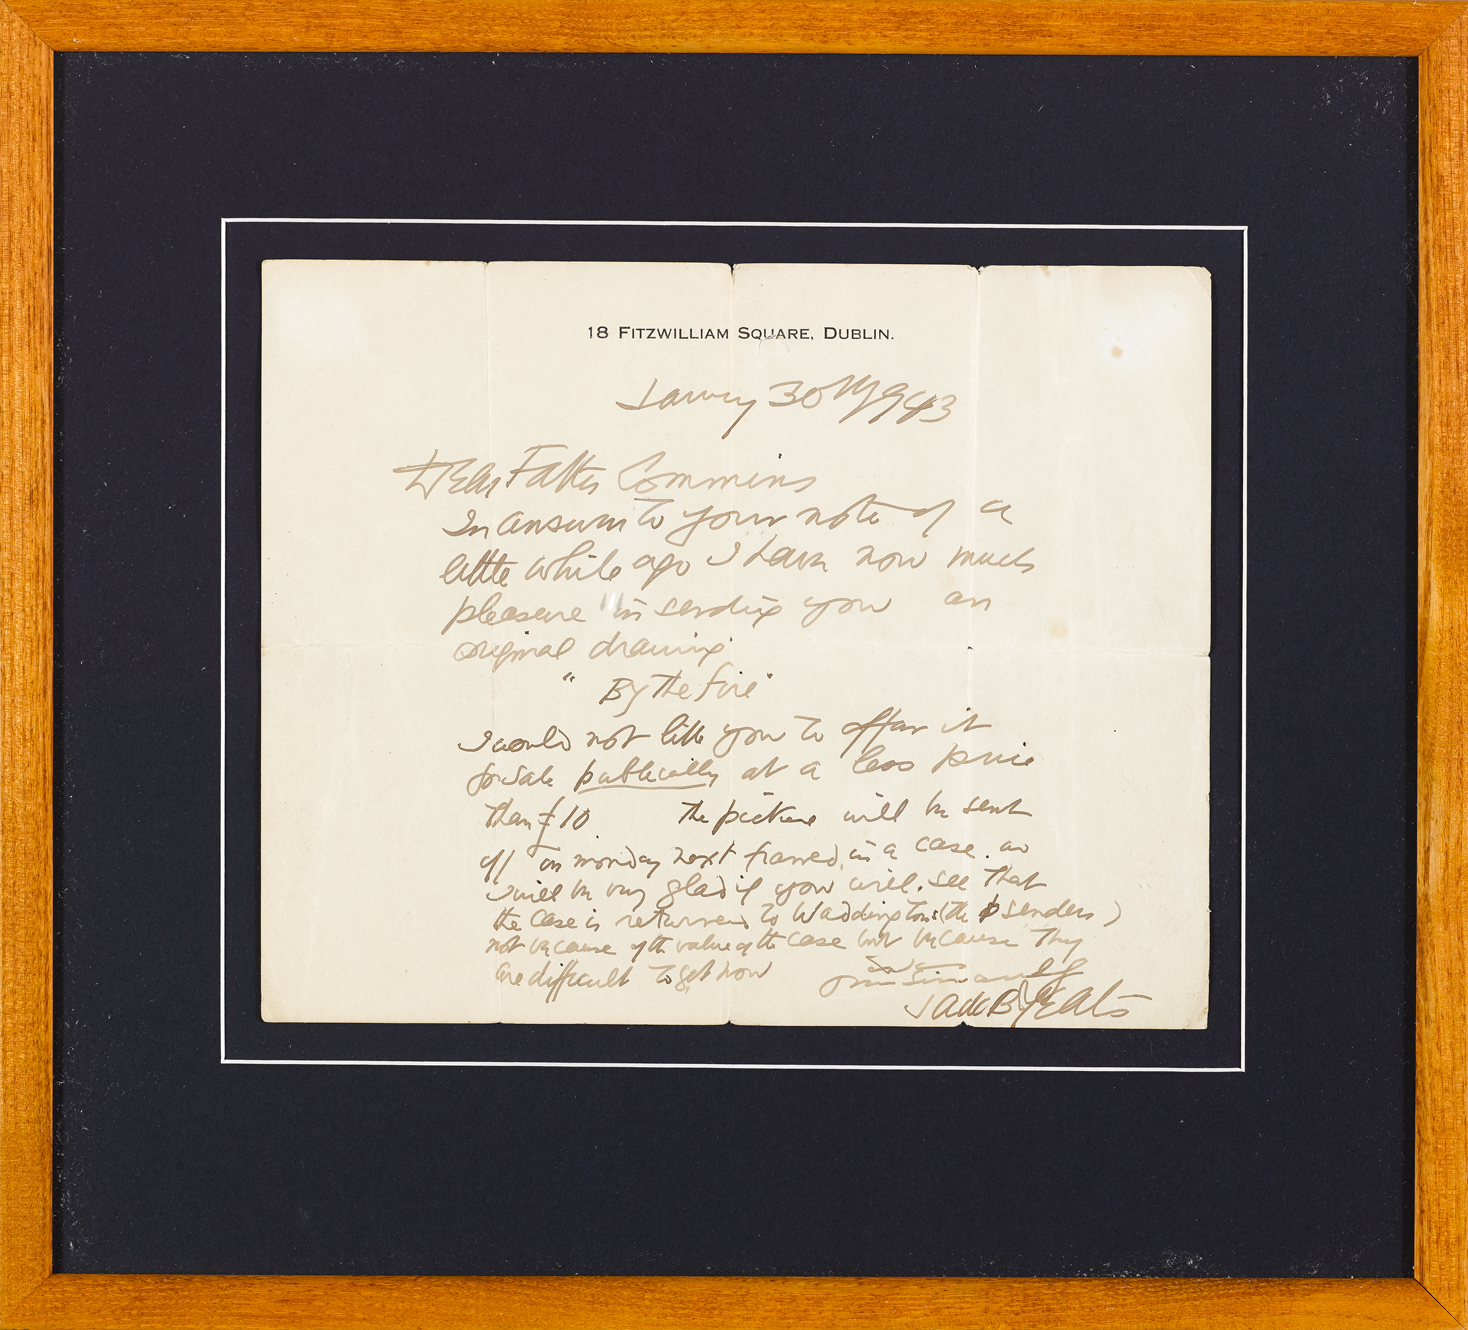 18 FITZWILLIAM SQUARE, DUBLIN.
January 30th 1943
Dear Father Commins
In answer to your note of a
little while ago I have now much
pleasure in sending you an
original drawing
"By the fire"
I would not like you to offer it
for sale publically at a less price
than £10 the picture will be sent
off on monday next framed, in a case. as
I will be very glad if you will. see that
the case is returned to Waddingtons (the senders)
not because of the value of the case but because they
are difficult to get now yours sincerely
Jack B Yeats